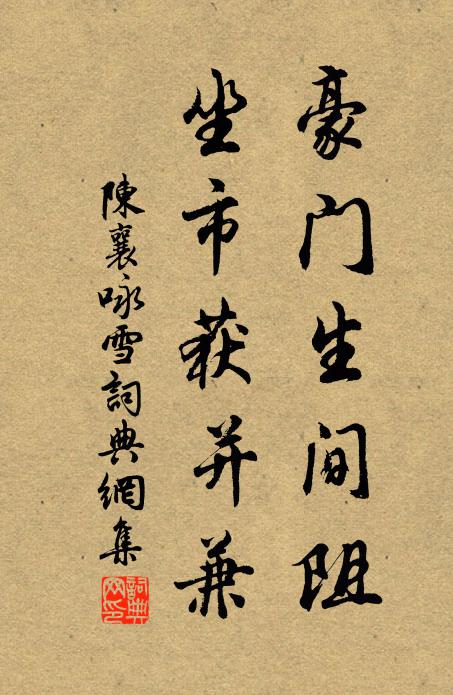 豪门生间阻
坐市获并兼
陳襄咏雪詞典網集
詞典网印